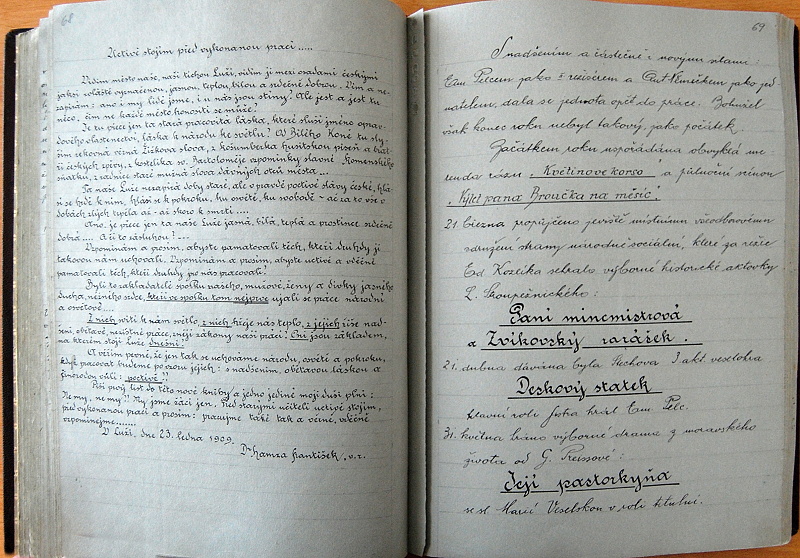 68
Uctivě stojím před vykonanou prací .....
Vidím město naše, naši tichou Luži, vidím ji mezi osadami českými
jaksi volaště vyznačenou, jasnou, teplou, bílou a srdečně dobrou. Vím a ne-
zapírám: ano i my lidé jsme, i u nás jsou stíny! Ale jest a jest tu
něco, čím ne každé město honositi se může!
Je tu přece jen ta stará pracovitá láska, které sluší jméno oprav-
dového vlastenectví, láska k národu, ke světlu! Od Bílého Koně tu sly-
ším řekovná věrná Žižkova slova, z košumberka husitskou píseň a brat-
ří českých zpěvy, z kostelíka sv. Bartoloměje vzpomínky slavné Komenského
sňatku, z radnice staré mužná slova dávných otců města ...
Ta naše Luže nezapírá doby staré, ale o pravdě poctivé slávy české, hlá-
sí se hrdě k nim, hlásí k pokroku, ku osvětě, ku svobodě - ač za to vše v
dobách zlých trpěla až - až skoro k smrti ....
Ano, je přece jen ta naše Luže jasná, bílá, teplá a prostince srdečně
dobrá .... A čí to zásluhou?
Vzpomínám a prosím, abyste pamatovali těch, kteří druhdy ji
takovou nám uchovali. Vzpomínám a prosím, abyste uctivě a vděčně
pamatovali těch, kteří druhdy po nás pracovali!
Byli to zakladatelé spolku vašeho, mužové, ženy a dívky jasného
ducha, něžného srdce, kteří ve spolku tom nejprve ujali se práce národní
a osvětové ....
Z nich svítí k nám světlo, z nich hřeje nás teplo, z jejich říše nad-
šení, obětavé, nezištné práce, znějí zákony naší práci! Oni jsou základem,
na kterém stojí Luže dnešní!
A věřím pevně, že jen tak se uchováme národu, osvětě a pokroku,
když pracovat budeme po vzoru jejich: s nadšením, obětavou láskou a
svornou vůlí: poctivě!!
Píši prvý list do této nové knihy a jedno jediné moji duši plní:
Ne my, ne my!! My jsme žáci jen. Před starými učiteli uctivě stojím,
před vykonanou prací a prosím: pracujme také tak a věrně, vděčně
vzpomínejme ......
V Luži, dne 23. ledna 1909.
Dr Hamza František, v. r.
69
S nadšením a částečně i novými silami:
Em. Pelcem jako I režisérem a Ant. Němečkem jako jed-
natelem, dala se jednota opět do práce. Bohužel
však konec roku nebyl takový, jako počátek.
Začátkem roku uspořádána obvyklá me-
renda rázu „Květinové korso" a půlnoční scénou
„Výlet pana Broučka na měsíc".
21. března propůjčeno jeviště místnímu vzdělávacímu
sdružení strany národně sociální, které za režie
Ed. Kozička sehrálo výborné historické aktovky
L. Stroupežnického:
Paní mincmistrová
a Zvíkovský rarášek.
21. dubna dávána byla Štechova 3 akt. veselohra
Deskový statek
hlavní roli Jíšu hrál Em. Pelc.
31. května hráno výborné drama z moravského
života od G. Preissové:
Její pastorkyňa
se sl. Marií Veselskou v roli titulní.